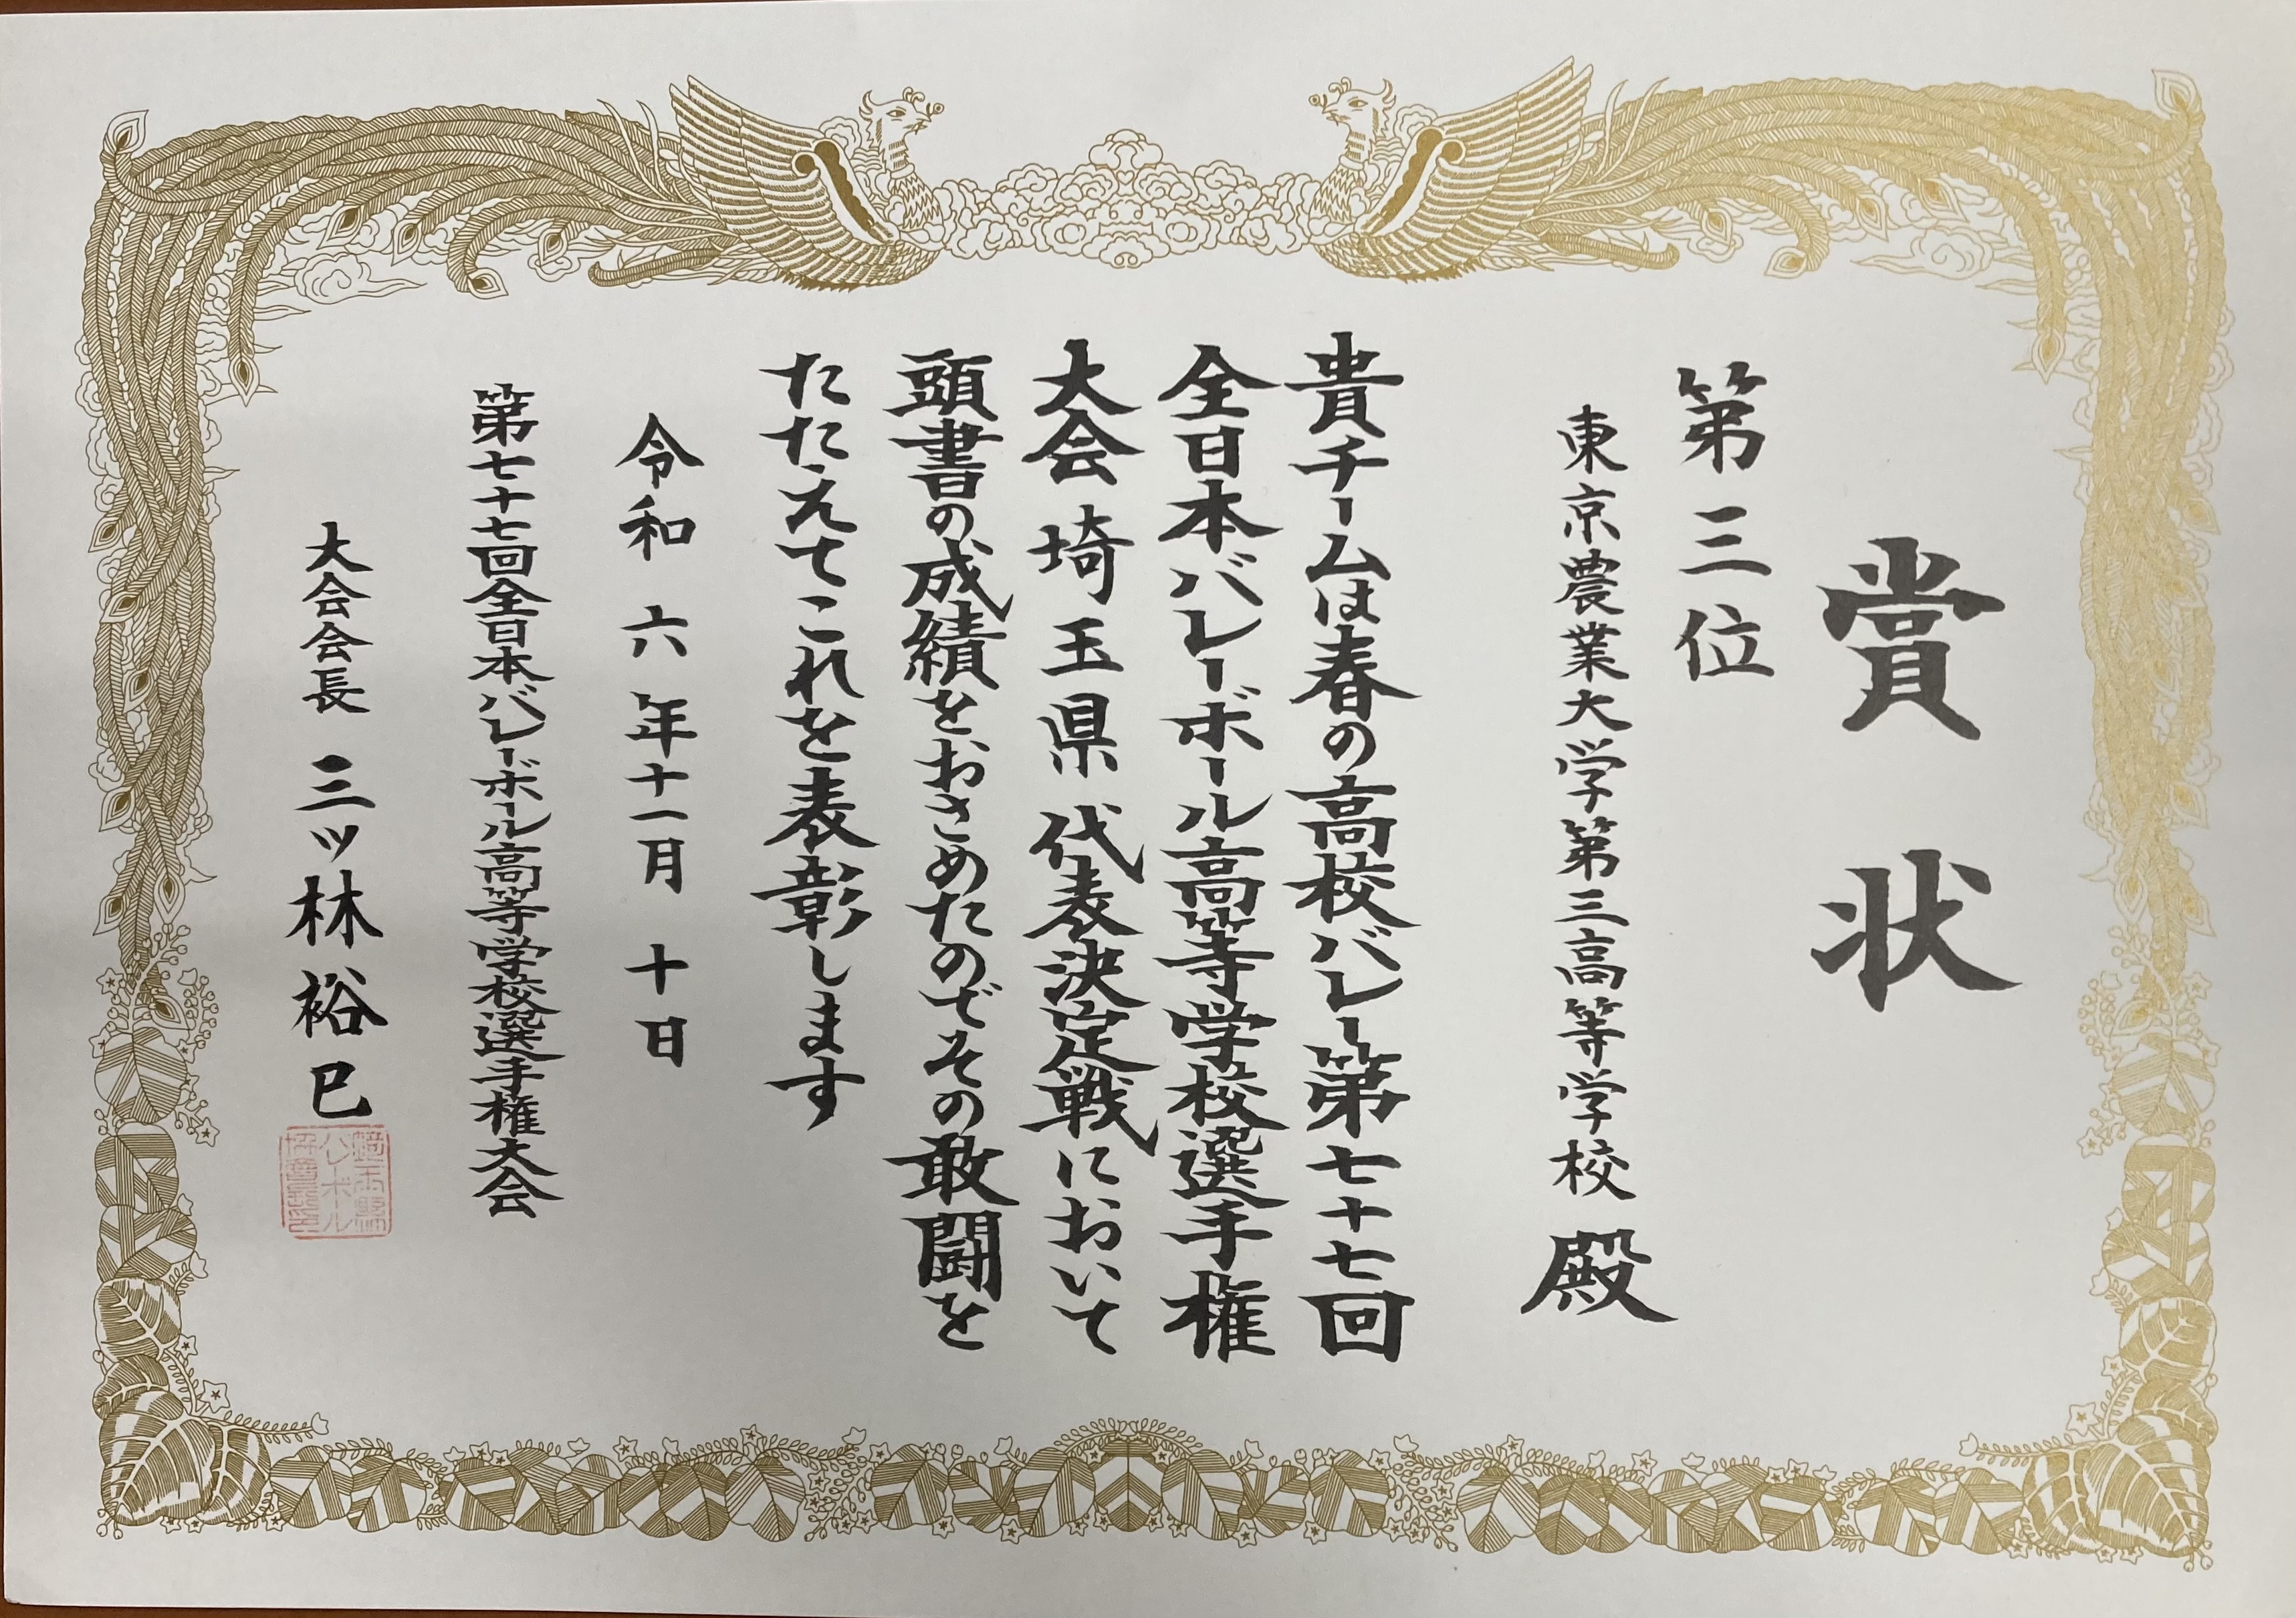 賞状
第三位
東京農業大学第三高等学校 殿
貴チームは春の高校バレー第七十七回
全日本バレーボール高等学校選手権
大会埼玉県代表決定戦において
頭書の成績をおさめたのでその敢闘を
たたえてこれを表彰します
令和六年十一月十日
第七十七回全日本バレーボール高等学校選手権大会
大会会長 三ツ林裕巳